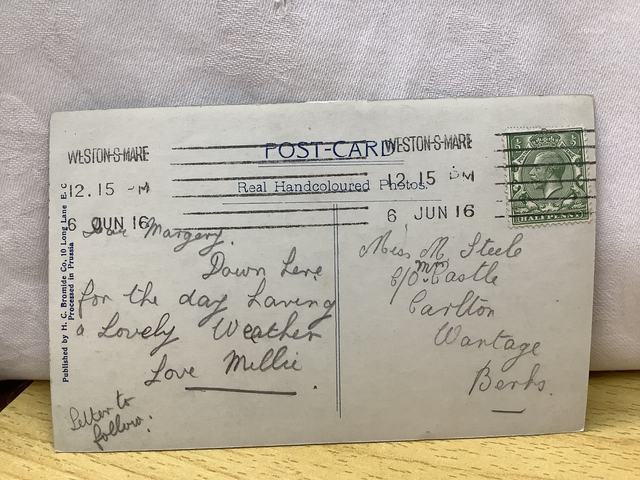 WESTON-S-MARE
12.15 PM
6 JUN 16
POST-CARD
Real Handcoloured Photos.
WESTON-S-MARE
12.15 PM
6 JUN 16
HALFPENNY
Published by H. C. Bromide Co., 10 Long Lane E. C
Processed in Prussia
Dear Margery.
Down here
for the day having
a Lovely Weather
Love Millie
Letter to
follow.
Miss M Steele
c/o Mrs Castle
Carlton
Wantage
Berks.